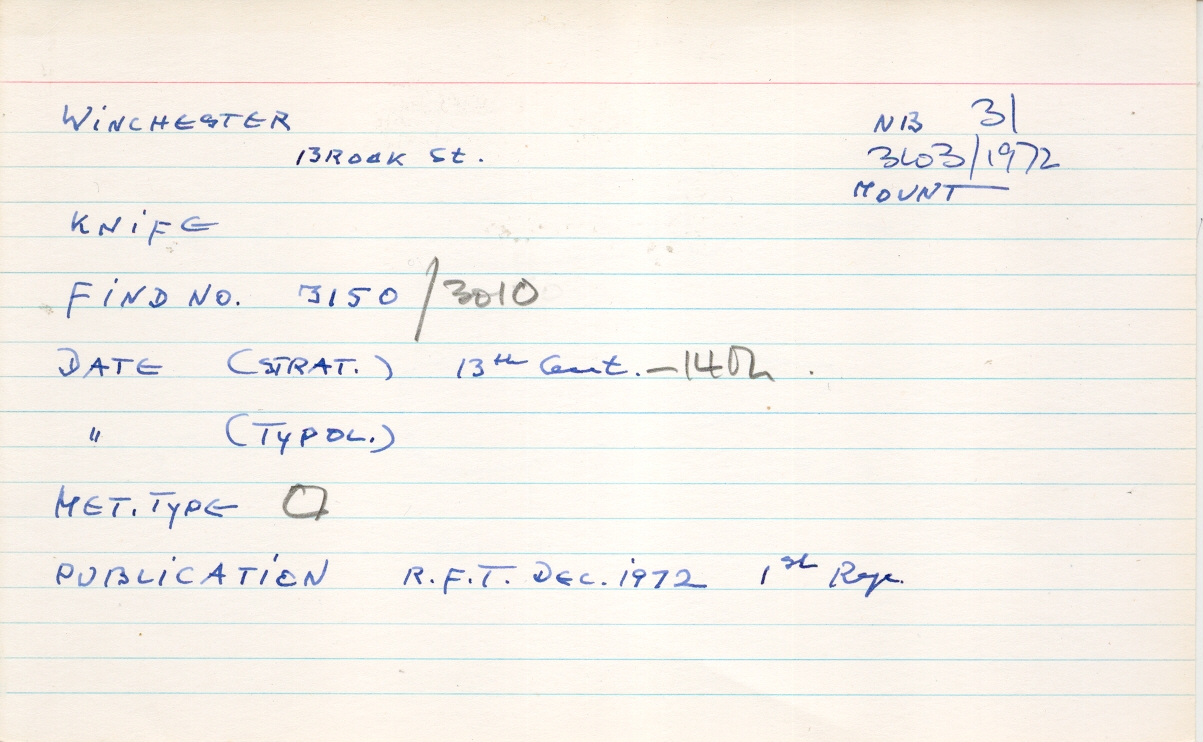 WINCHESTER
BROOK St.
NB 31
3603/1972
MOUNT
KNIFE
FIND NO. 3150/3010
DATE (STRAT.) 13th Cent. - 14th.
" (TYPOL.)
MET. TYPE
PUBLICATION R.F.T. DEC. 1972 1st Rep.